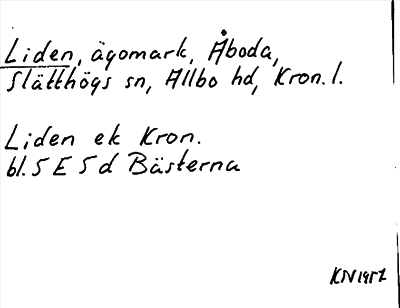 Liden, ägomark, Åboda,
Slätthögs sn, Allbo hd, Kron. l.
Liden ek Kron.
bl. 5 E 5 d Bästerna
KN 1957